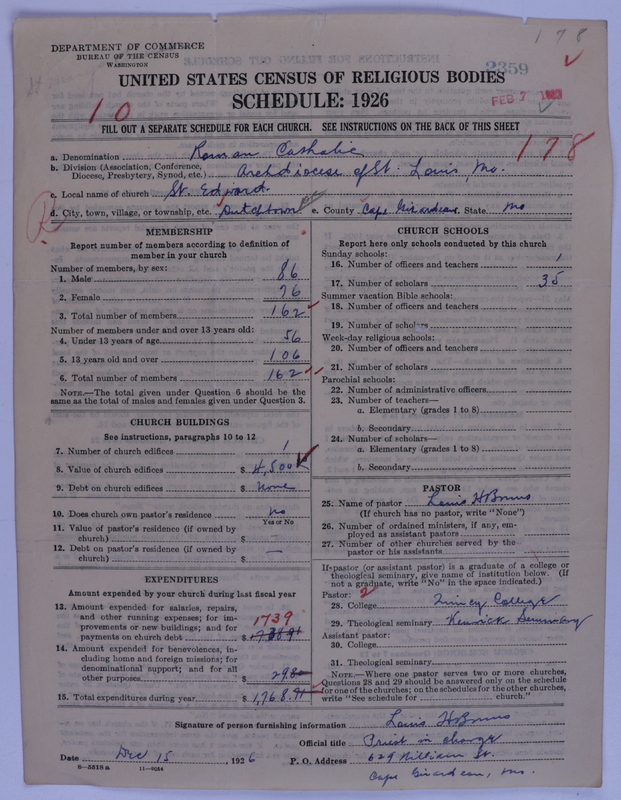 178
DEPARTMENT OF COMMERCE
BUREAU OF THE CENSUS
WASHINGTON
2359
UNITED STATES CENSUS OF RELIGIOUS BODIES
SCHEDULE: 1926
FEB 7
10
FILL OUT A SEPARATE SCHEDULE FOR EACH CHURCH. SEE INSTRUCTIONS ON THE BACK OF THIS SHEET
178
a. Denomination Roman Catholic
b. Division (Association, Conference, Diocese, Presbytery, Synod, etc.) Archdiocese of St. Louis, Mo.
c. Local name of church St. Edward.
d. City, town, village, or township, etc. Dutchtown e. County Cape Girardeau. State Mo
MEMBERSHIP
Report number of members according to definition of
member in your church
Number of members, by sex:
1. Male 86
2. Female 76
3. Total number of members 162
Number of members under and over 13 years old:
4. Under 13 years of age 56
5. 13 years old and over 106
6. Total number of members 162
NOTE.—The total given under Question 6 should be
same as the total of males and females given under Question 3.
CHURCH BUILDINGS
See instructions, paragraphs 10 to 12
7. Number of church edifices 1
8. Value of church edifices $ 4,500
9. Debt on church edifices $ None
10. Does church own pastor's residence No
Yes or No
11. Value of pastor's residence (if owned by
church) $
12. Debt on pastor's residence (if owned by
church) $ —
EXPENDITURES
Amount expended by your church during last fiscal year
13. Amount expended for salaries, repairs,
and other running expenses; for im- 1739
provements or new buildings; and for
payments on church debt $
14. Amount expended for benevolences, in-
cluding home and foreign missions; for
denominational support; and for all
other purposes $
15. Total expenditures during year $ 1,768.91
CHURCH SCHOOLS
Report here only schools conducted by this church
Sunday schools:
16. Number of officers and teachers 1
17. Number of scholars 35
Summer vacation Bible schools:
18. Number of officers and teachers
19. Number of scholars
Week-day religious schools:
20. Number of officers and teachers
21. Number of scholars
Parochial schools:
22. Number of administrative officers
23. Number of teachers—
a. Elementary (grades 1 to 8)
b. Secondary
24. Number of scholars—
a. Elementary (grades 1 to 8)
b. Secondary
PASTOR
25. Name of pastor Louis H Bruns
(If church has no pastor, write "None")
26. Number of ordained ministers, if any, em-
ployed as assistant pastors
27. Number of other churches served by the
pastor or his assistants
If pastor (or assistant pastor) is a graduate of a college or
theological seminary, give name of institution below. (If
not a graduate, write "No" in the space indicated.)
Pastor: 2
28. College Quincy College
29. Theological seminary Kenrick Seminary
Assistant pastor:
30. College
31. Theological seminary
NOTE.—Where one pastor serves two or more churches,
Questions 28 and 29 should be answered only on the schedule
for one of the churches; on the schedules for the other churches,
write "See schedule for church."
Signature of person furnishing information Louis H Bruns
Official title Priest in charge
Date Dec 15, 1926 P. O. Address 629 William St.
Cape Girardeau, Mo.
8—5518a 11—9054